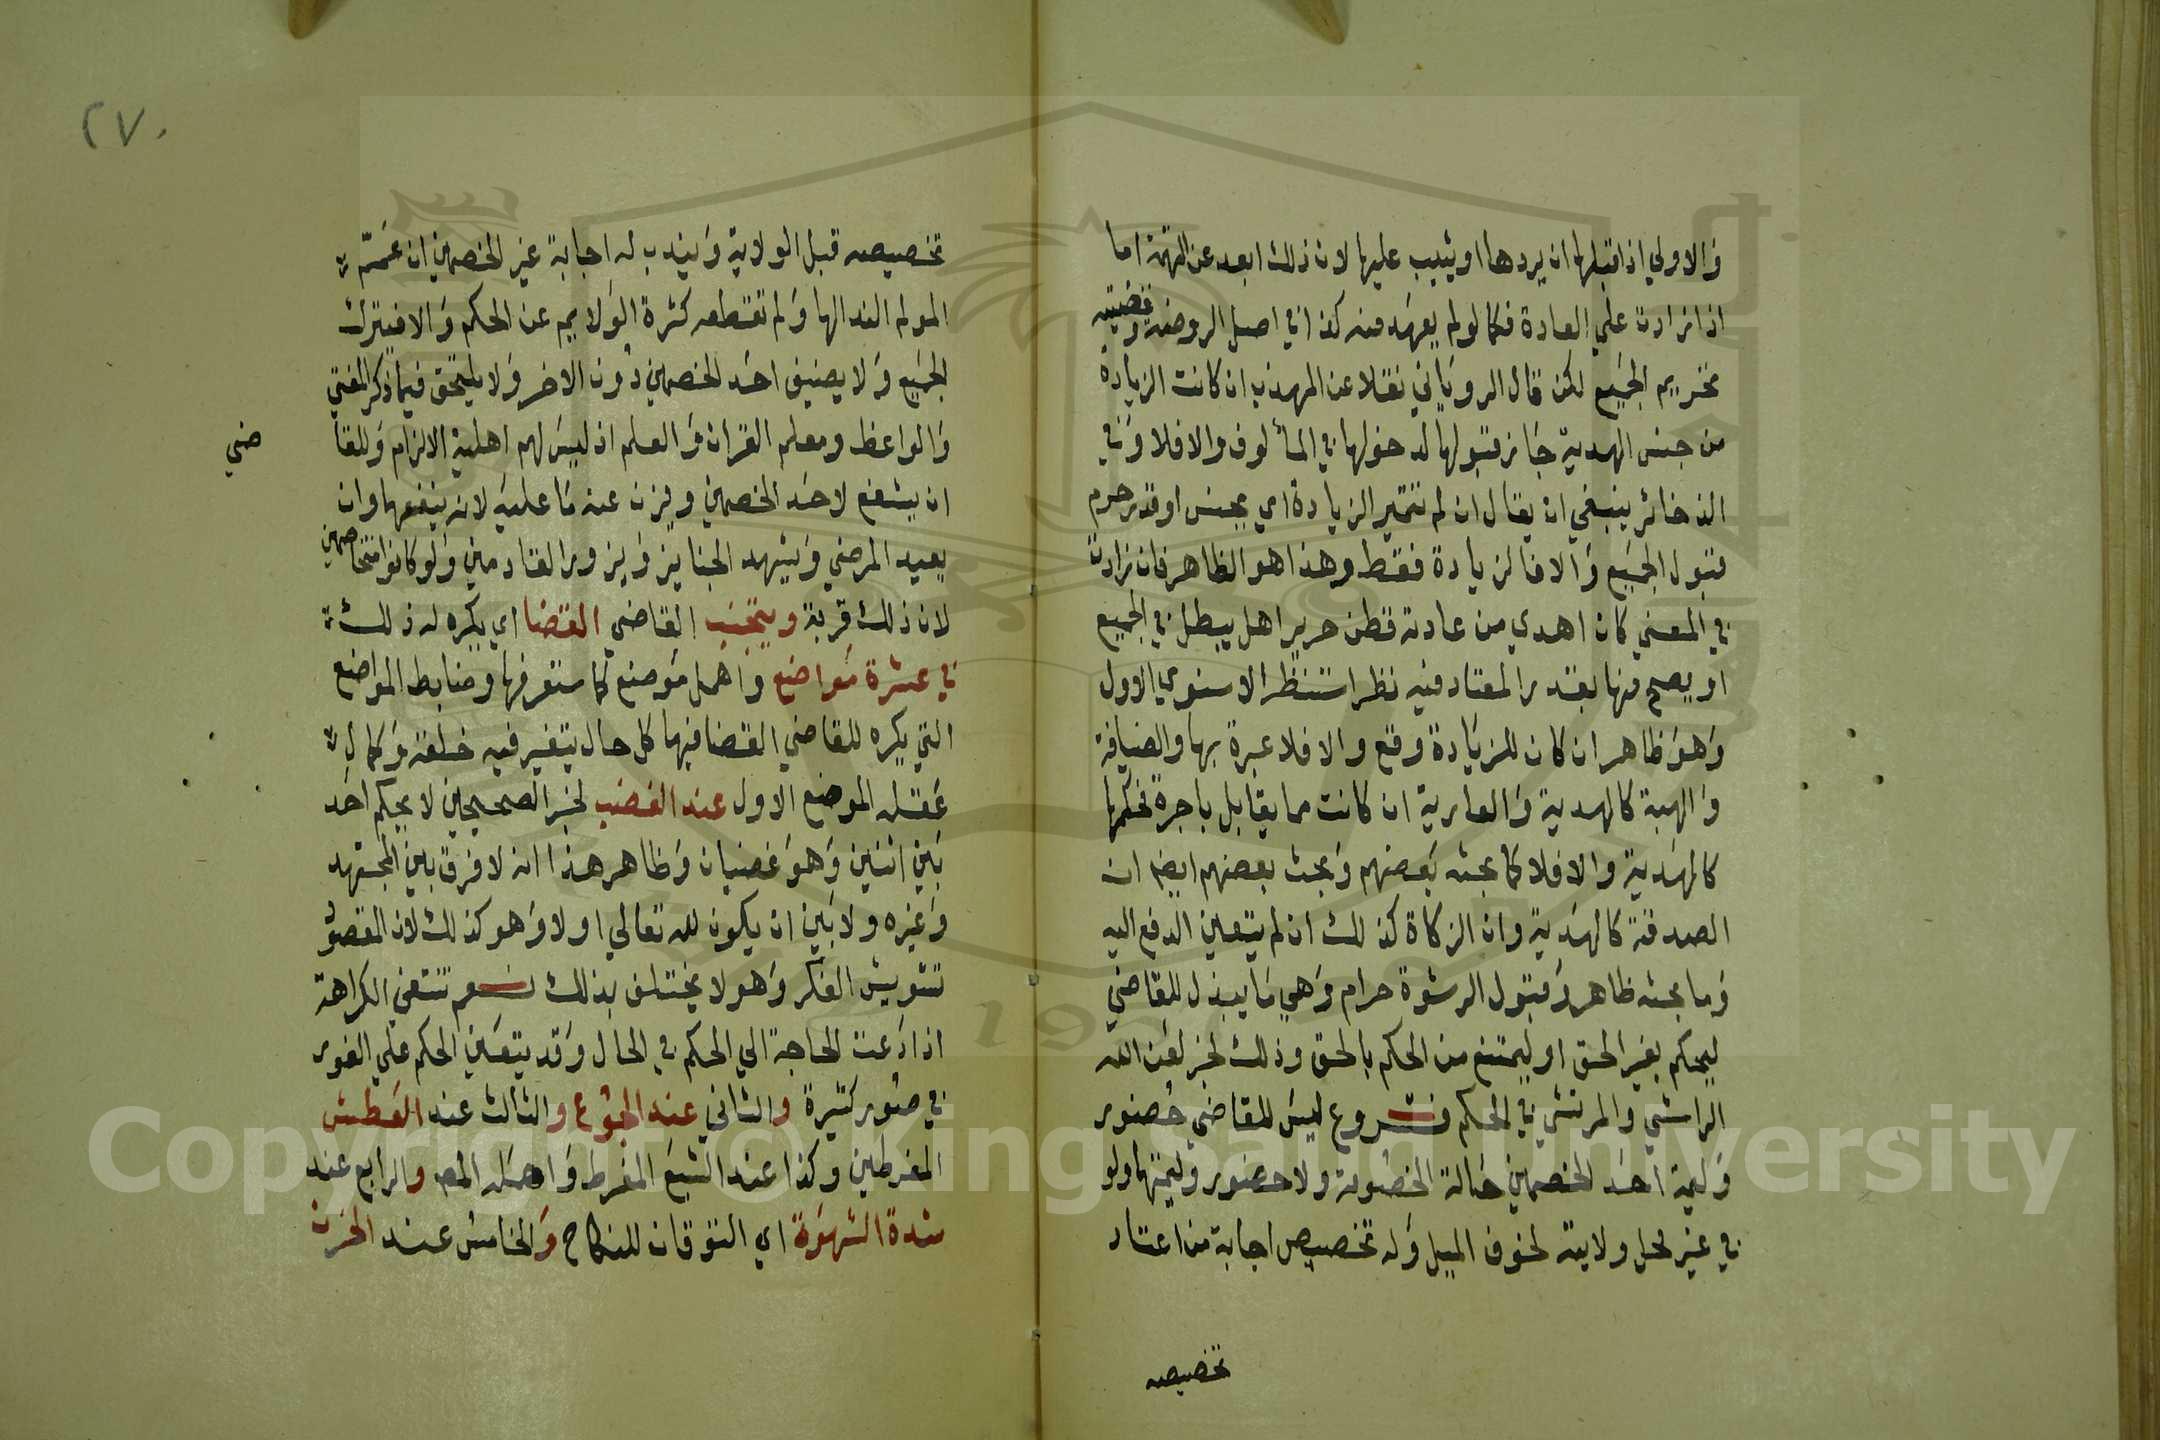 والاولي اذا قبلها ان يردها او يثيب عليها لان ذلك ابعد عن التهمة اما
اذا زادت علي العادة فكما لو لم يعهد منه كذا في اصل الروضة وقضيته
تحريم الجميع لكن قال الروياني نقلا عن المهذب ان كانت الزيادة
من جنس الهدية جاز قبولها لدخولها في المألوف والا فلا وفي
الذخائر ينبغي ان يقال ان لم تتميز الزيادة اي بجنس او قدر حرم
قبول الجميع والا فالزيادة فقط وهذا هو الظاهر فان زادت
في المعني كان اهدي من عادته قطن حريرا هل يبطل في الجميع
او يصح منها بقدر المعتاد فيه نظر استنظر الاسنوي الاول
وهو ظاهر ان كان للزيادة وقع والا فلا عبرة بها والضيافة
والهبة كالهدية والعارية ان كانت مما يقابل باجرة فحكمها
كالهدية والا فلا كما بحثه بعضهم وبحث بعضهم ايضا ان
الصدقة كالهدية وان الزكاة كذلك ان لم يتعين الدفع اليه
وما بحثه ظاهر وقبول الرشوة حرام وهي ما يبذل للقاضي
ليحكم بغير الحق او ليمتنع من الحكم بالحق وذلك لخبر لعن الله
الراشي والمرتشي في الحكم فروع ليس للقاضي حضور
وليمة احد الخصمين حالة الخصومة ولا حضور وليمتهما ولو
في غير محل ولايته لخوف الميل وله تخصيص اجابة من اعتاد
تخصيصه
٢٧٠
تخصيصه قبل الولاية ويندب له اجابة غير الخصمين ان عمم
المولم الندا لها ولم تقطعه كثرة الولايم عن الحكم والا فيترك
الجميع ولا يضيف احد الخصمين دون الاخر ولا يلتحق فيما ذكر المفتي
والواعظ ومعلم القران والعلم اذ ليس لهم اهلية الالزام وللقا
ضي
ان يشفع لاحد الخصمين ويزن عنه ما عليه لانه ينفعهما وان
يعيد المرضي ويشهد الجنايز ويزور القادمين ولو كانوا متخاصمين
لان ذلك قربة ويتجنب القاضي القضا اي يكره له ذلك
في عشرة مواضع واهمل مواضع كما ستعرفها وضابط المواضع
التي يكره للقاضي القضا فيها كل حال يتغير فيه خلقه وكمال
عقله الموضع الاول عند الغضب لخبر الصحيحين لا يحكم احد
بين اثنين وهو غضبان وظاهر هذا انه لا فرق بين المجتهد
وغيره ولا بين ان يكون لله تعالي او لا وهو كذلك لان المقصود
تشويش الفكر وهو لا يختلف بذلك نعم تنتفي الكراهة
اذا دعت الحاجة الي الحكم في الحال وقد يتعين الحكم علي الفور
في صور كثيرة والثاني عند الجوع والثالث عند العطش
المفرطين وكذا عند الشبع المفرط واهمله المص والرابع عند
شدة الشهوة اي التوقان للنكاح والخامس عند الحزن
Copyright © King Saud University